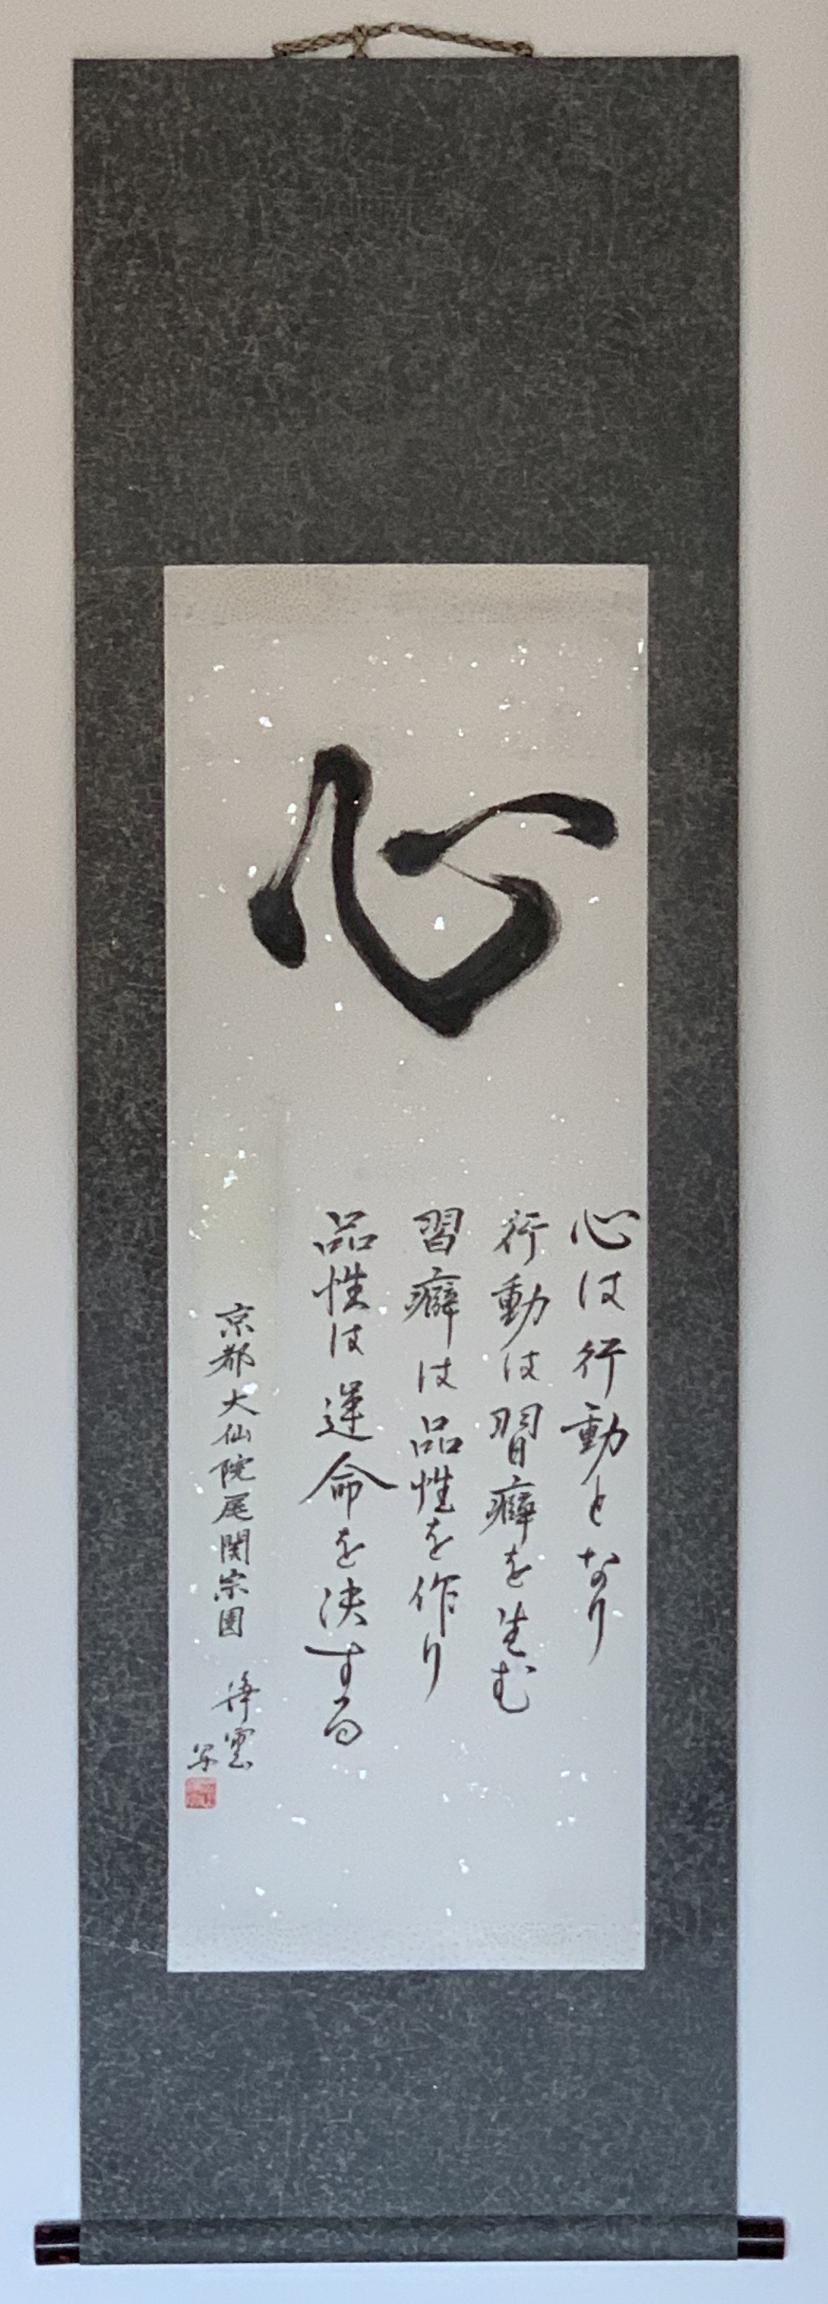 心
心は行動となり
行動は習癖を生む
習癖は品性を作り
品性は運命を決する
京都大仙院尾関宗園
浄雲
写